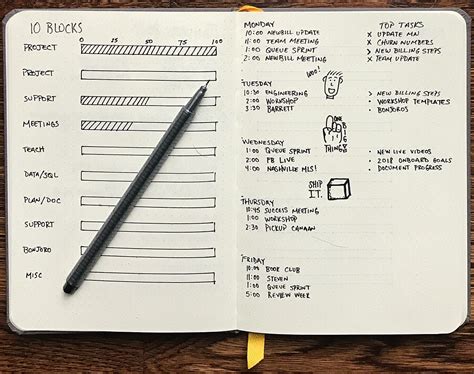 10 BLOCKS
0 25 50 75 100
PROJECT
PROJECT
SUPPORT
MEETINGS
TEACH
DATA/SQL
PLAN/DOC
SUPPORT
BONJORO
MISC
MONDAY
10:00 NEWBILL UPDATE
11:00 TEAM MEETING
1:00 QUEUE SPRINT
2:00 NEWBILL MEETING
TOP TASKS
x UPDATE MN
x CHURN NUMBERS
> NEW BILLING STEPS
x TEAM UPDATE
WOO!
TUESDAY
10:30 ENGINEERING
2:00 WORKSHOP
3:30 BARRETT
> NEW BILLING STEPS
• WORKSHOP TEMPLATES
• BONJOROS
ONE
BIG
THING
WEDNESDAY
1:00 QUEUE SPRINT
2:00 PB LIVE
4:00 NASHVILLE MLS!
• NEW LIVE VIDEOS
• 2018 ONBOARD GOALS
• DOCUMENT PROGRESS
SHIP
IT.
THURSDAY
10:45 SUCCESS MEETING
1:00 WORKSHOP
2:30 PICKUP CANAAN
FRIDAY
10:00 BOOK CLUB
11:00 STEVEN
1:00 QUEUE SPRINT
5:00 REVIEW WEEK